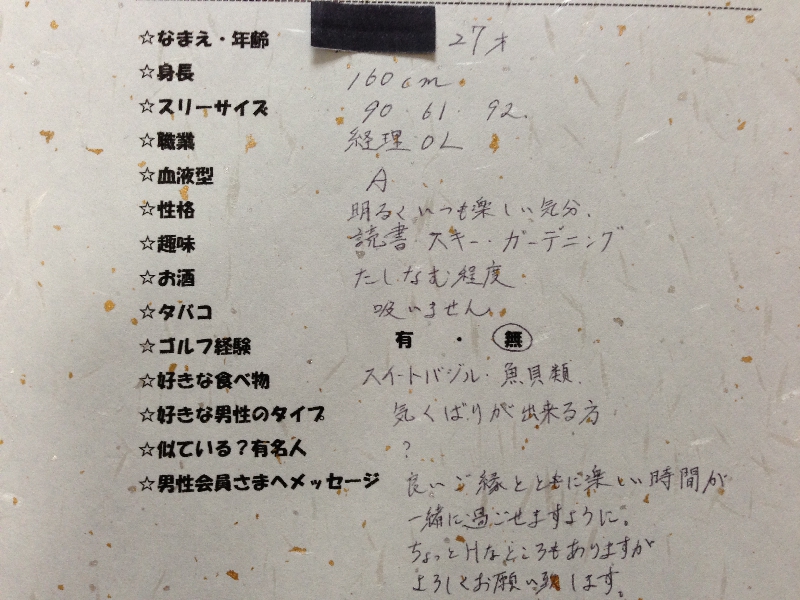 ☆なまえ・年齢 27才
☆身長 160cm
☆スリーサイズ 90・61・92.
☆職業 経理OL
☆血液型 A
☆性格 明るくいつも楽しい気分.
☆趣味 読書・スキー・ガーデニング
☆お酒 たしなむ程度
☆タバコ 吸いません
☆ゴルフ経験 有・無
☆好きな食べ物 スイートバジル・魚貝類.
☆好きな男性のタイプ 気くばりが出来る方
☆似ている?有名人 ?
☆男性会員さまへメッセージ 良いご縁とともに楽しい時間が
一緒に過ごせますように。
ちょっとHなところもありますが
よろしくお願い致します。